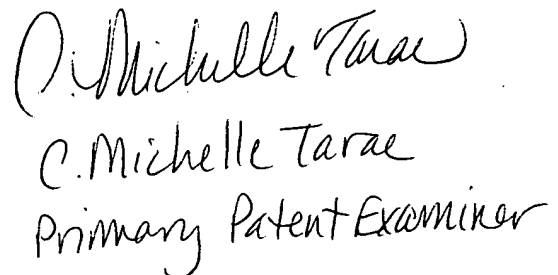 C. Michelle Tarae
C. Michelle Tarae
Primary Patent Examiner